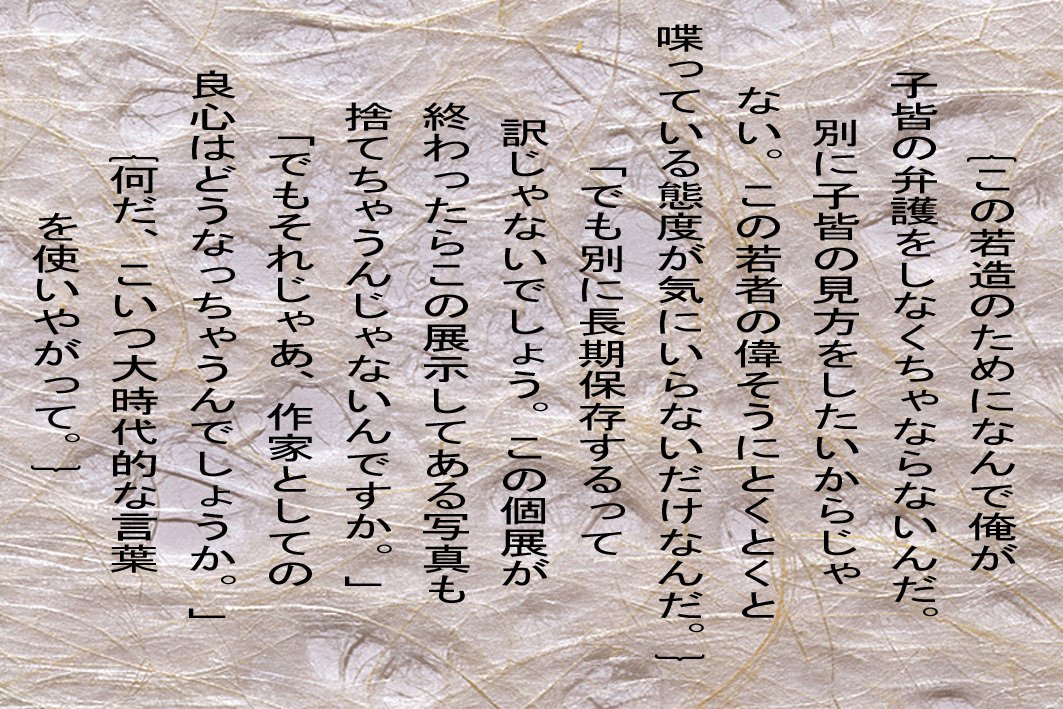 ｛この若造のためになんで俺が
子皆の弁護をしなくちゃならないんだ。
別に子皆の見方をしたいからじゃ
ない。この若者の偉そうにとくとくと
喋っている態度が気にいらないだけなんだ。｝
「でも別に長期保存するって
訳じゃないでしょう。この個展が
終わったらこの展示してある写真も
捨てちゃうんじゃないんですか。」
「でもそれじゃあ、作家としての
良心はどうなっちゃうんでしょうか。」
｛何だ、こいつ大時代的な言葉
を使いやがって。｝